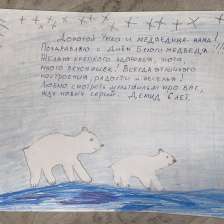 Дорогой Умка и медведица-мама!
Поздравляю с Днём белого медведя!!!
Желаю крепкого здоровья,
много вкусняшек! Всегда отличного
настроения, радости и веселья!
Люблю смотреть мультфильмы про вас,
жду новых серий. Демид 6 лет.